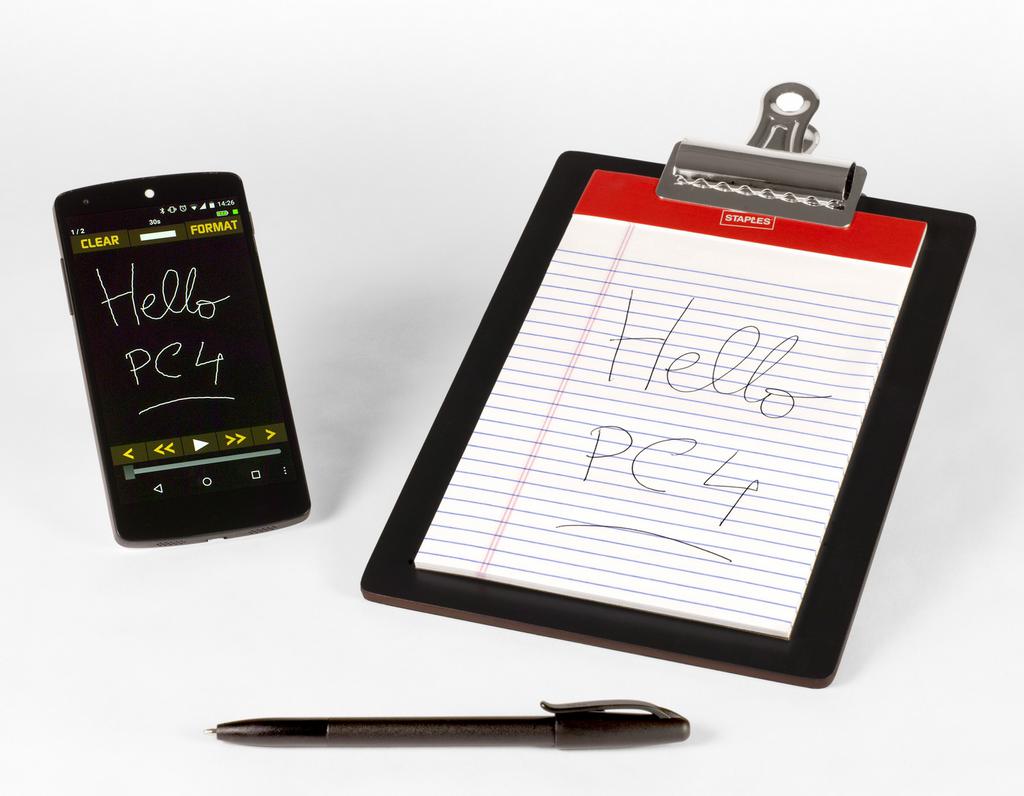 14:26
1/2
30s
CLEAR
FORMAT
Hello
PC4
< << >> >
STAPLES
Hello
PC4